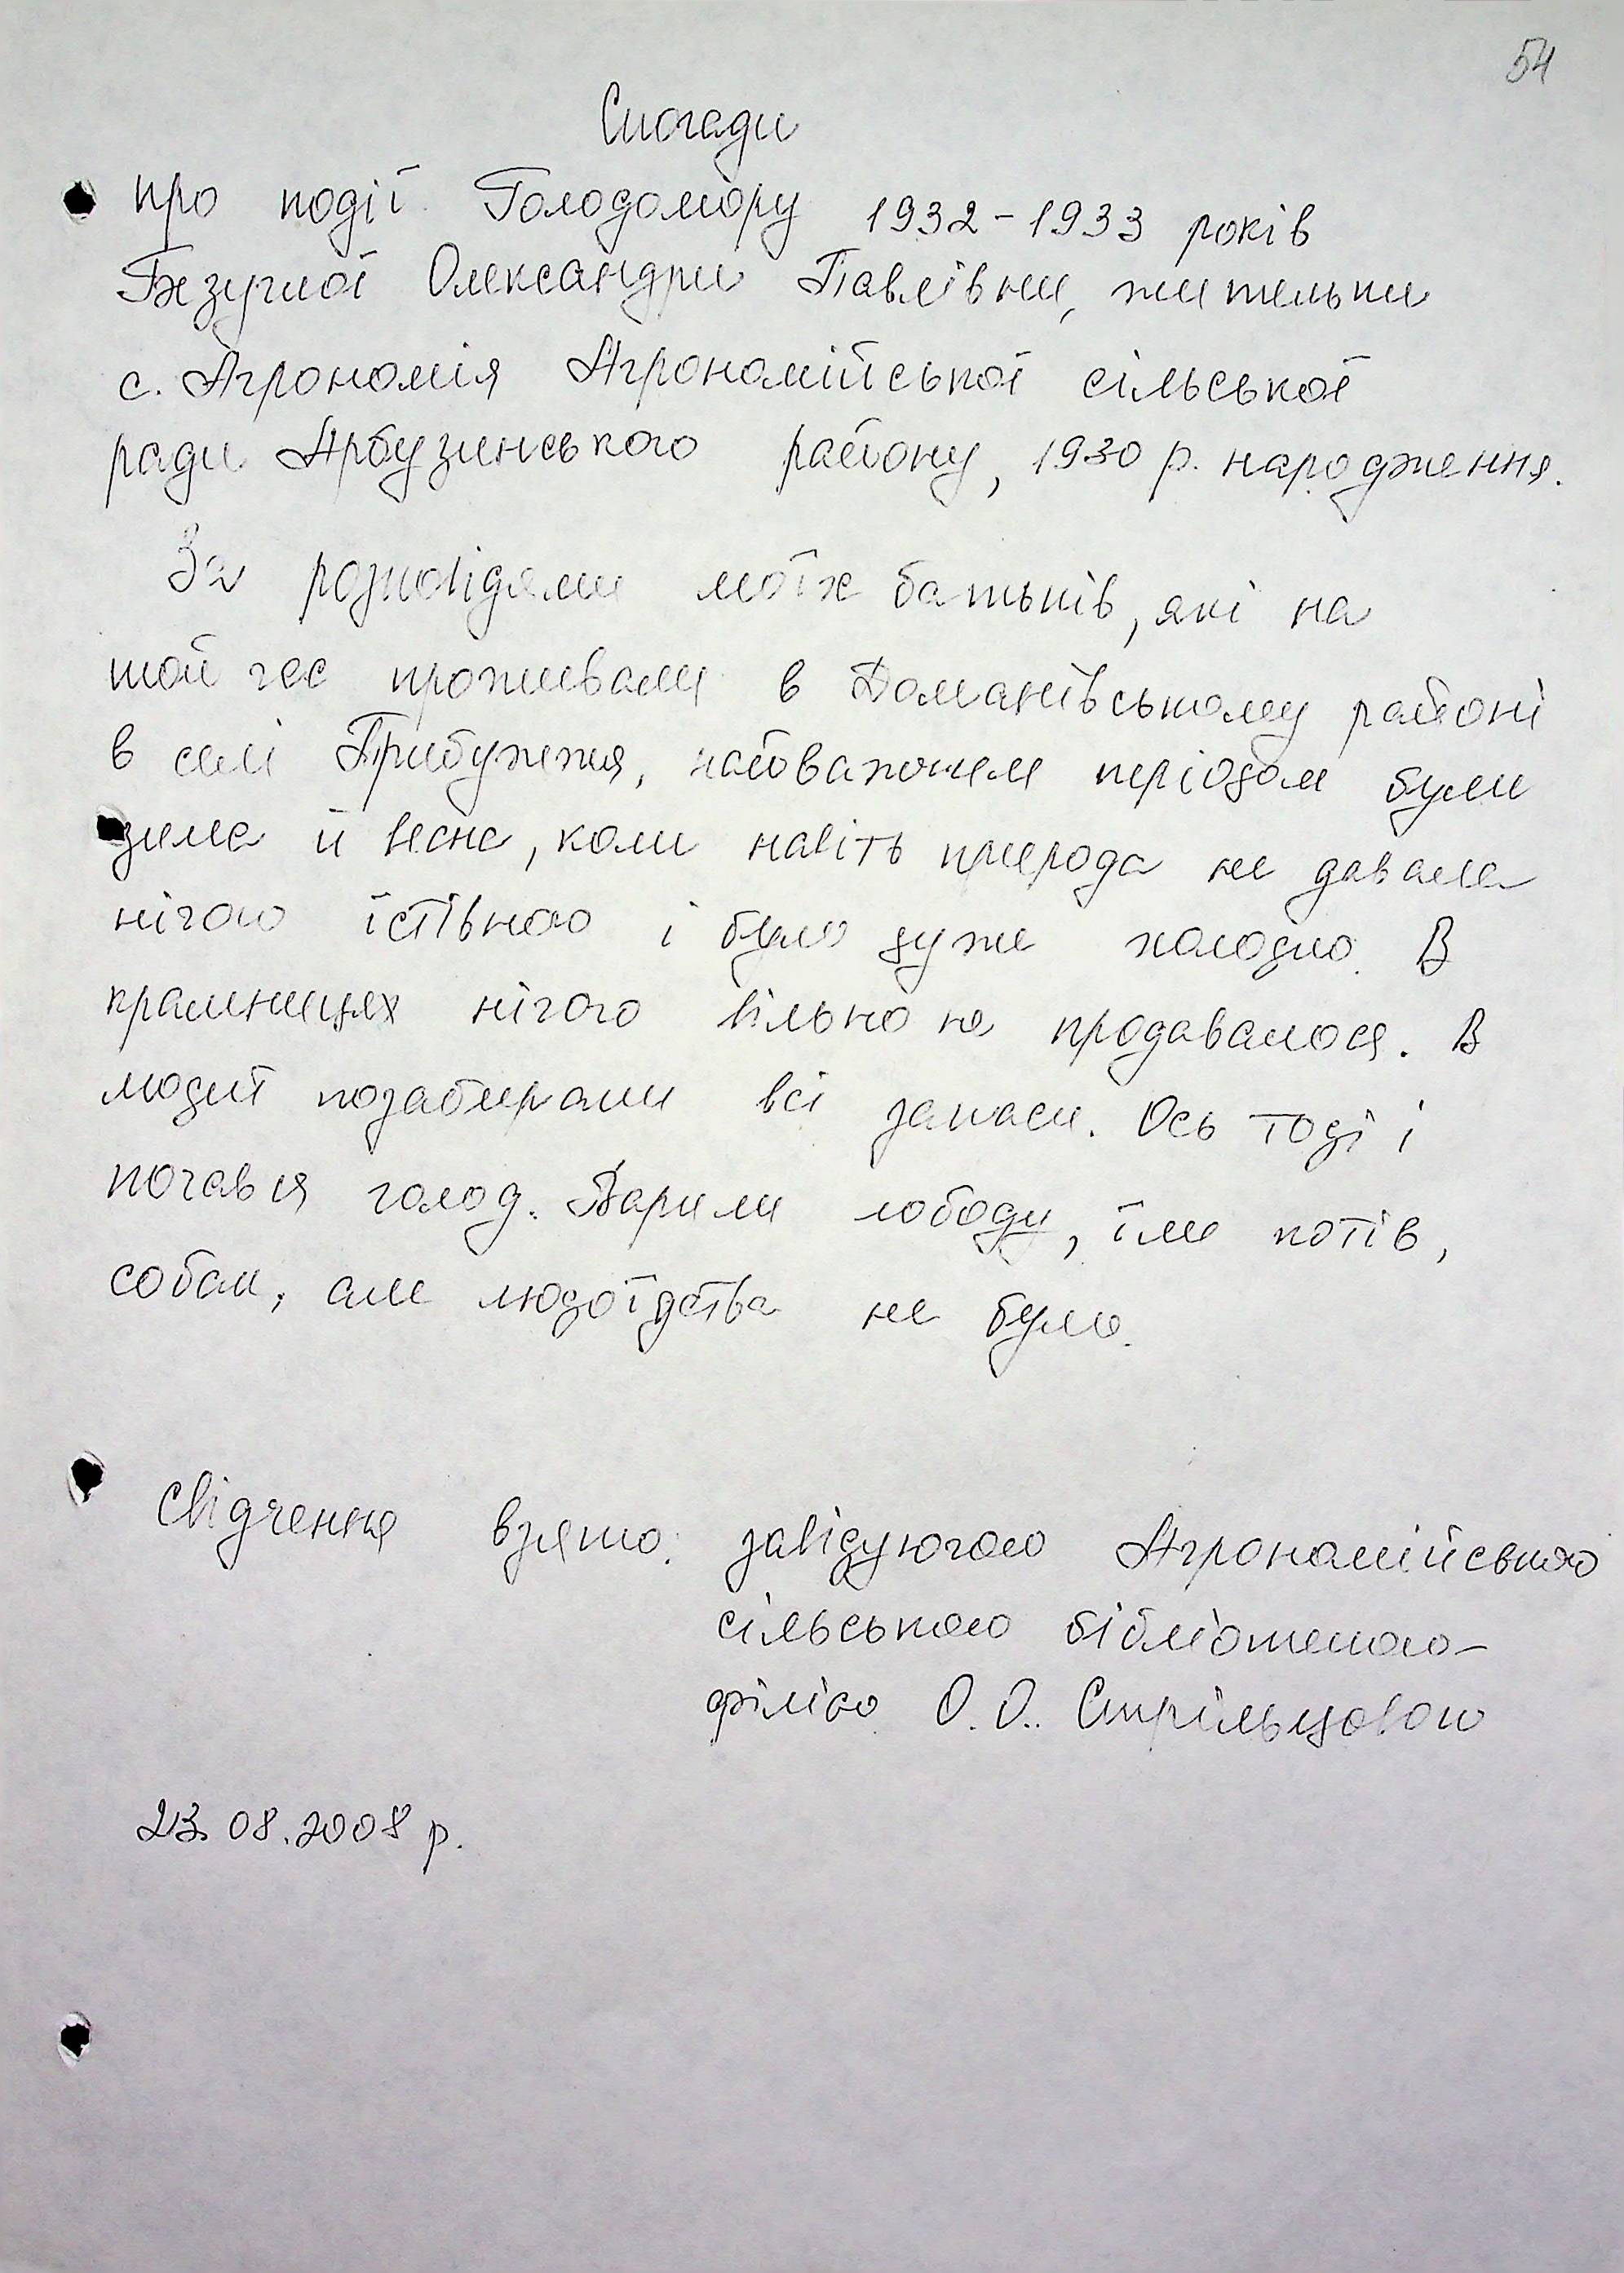 54
Спогади
про події Голодомору 1932-1933 років
Безуглої Олександри Павлівни, жительки
с. Агрономія Агрономійської сільської
ради Арбузинського району, 1930 р. народження.
За розповідями моїх батьків, які на
той час проживали в Доманівському районі
в селі Прибужжя, найважчим періодом були
зима й весна, коли навіть природа не давала
нічого їстівного і було дуже холодно. В
крамницях нічого вільно не продавалося. В
людей позабирали всі запаси. Ось тоді і
почався голод. Варили лободу, їли котів,
собак, але людоїдства не було.
Свідчення взято: завідуючою Агрономійською
сільською бібліотекою-
філією О.О. Стрільцовою
23.08.2008 р.